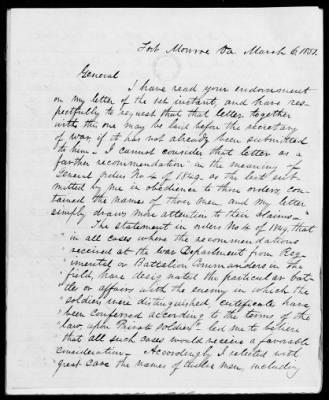 Fort Monroe Va March 6, 1851.
General
I have read your endorsement
on my letter of the 1st instant, and have res-
pectfully to request that that letter together
with this one may be laid before the secretary
of war if it has not already been submitted
to him – I cannot consider that letter as a
further recommendation in the meaning of
General orders No 4 of 1849. as the last sub
mitted by me in obedience to those orders con-
tained the names of those men and my letter
simply draws more attention to their claims –
The statement in orders No 4 of 1849, that
"in all cases where the recommendations
"received at the War Department from Reg-
"imental or Battalion Commanders in the
"field, have designated the particular bat-
"tle or affairs with the enemy in which the
"soldiers were distinguished, certificates have
"been conferred according to the terms of the
"law, upon Private Soldiers" led me to believe
that all such cases would receive a favorable
consideration – Accordingly I selected with
great care the names of men, including